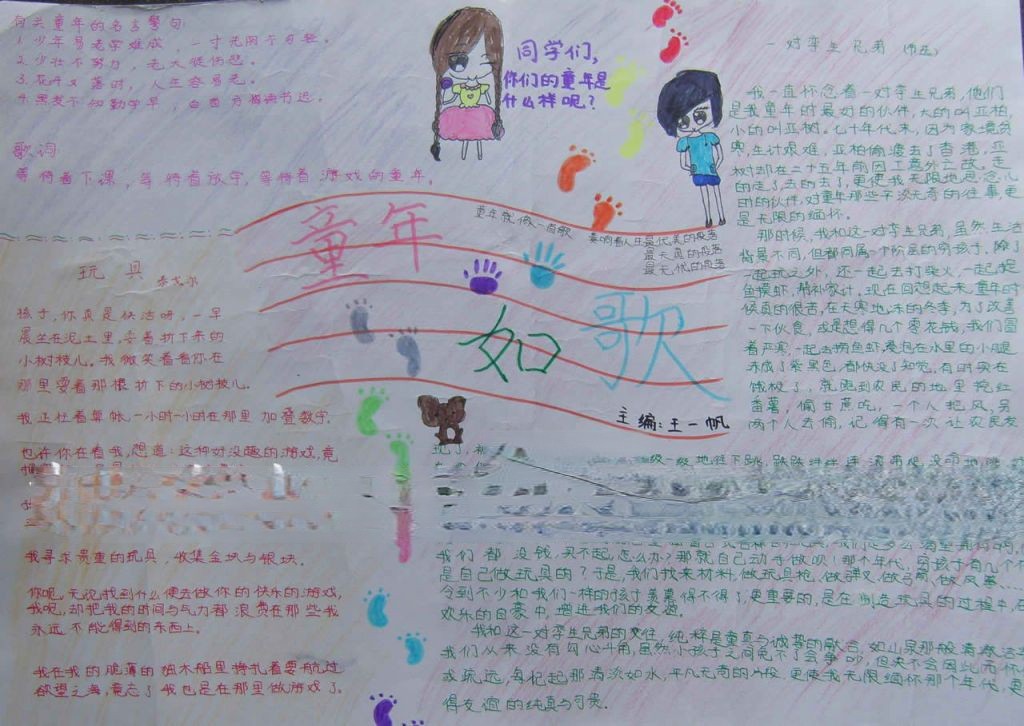 有关童年的名言警句
1.少年易老学难成,一寸光阴不可轻。
2.少壮不努力,老大徒伤悲。
3.花开又落时,人生容易老。
4.黑发不知勤学早,白首方悔读书迟。
歌词
等待着下课,等待着放学,等待着游戏的童年。
同学们,
你们的童年是
什么样呢?
童年
如
歌
童年就像一首歌
最天真的段落
最无忧的段落
主编:王一帆
玩具
泰戈尔
孩子,你真是快活呀,一早
晨坐在泥土里,耍着折下来的
小树枝儿。我微笑着看你在
那里耍着那根折下的小树枝儿。
我正忙着算帐,一小时一小时在那里加叠数字。
也许你在看我,想道:这种好没趣的游戏,竟
我寻求贵重的玩具,收集金块与银块。
你呢,无论找到什么便去做你的快乐的游戏,
我呢,却把我的时间与气力都浪费在那些我
永远不能得到的东西上。
我在我的脆薄的独木船里挣扎着要航过
欲望之海,竟忘了我也是在那里做游戏了。
一对孪生兄弟
我一直怀念着一对孪生兄弟,他们
是我童年时最好的伙伴,大的叫亚柏,
小的叫亚树,七十年代末,因为家境贫
寒,生计艰难,亚柏偷渡去了香港,亚
树却在二十五年前因工意外亡故,走
的走了,去的去了,更使我无限地思念儿
时的伙伴,对童年那些平淡无奇的往事,更
是无限的缅怀。
那时候,我和这一对孪生兄弟,虽然生活
背景不同,但都同属一个阶层的穷孩子,除了
一起玩之外,还一起去打柴火,一起捉
鱼摸虾,帮补家计。现在回想起来,童年时
候真的很苦,在天寒地冻的冬季,为了改善
一下伙食,或是想得几个零花钱,我们冒
着严寒,一起去捞鱼虾,浸泡在水里的小腿
冻成了紫黑色,都快没了知觉,有时实在
饿极了,就跑到农民的地里挖红
番薯,偷甘蔗吃,一个人把风,另
两个人去偷,记得有一次让农民发
现了,
我们都没钱,买不起,怎么办?那就自己动手做呗!那个年代,男孩子有几个不
是自己做玩具的?于是,我们找来材料,做玩具枪,做弹叉,做弓箭,做风筝……
令到不少和我们一样的孩子羡慕得不得了,更重要的,是在制造玩具的过程中,在
欢乐的自豪中,增进我们的友谊。
我和这一对孪生兄弟的交往,纯粹是童真与诚挚的融合,如山泉那般清澈洁
我们从来没有勾心斗角,虽然小孩子之间免不了会争吵,但决不会因此而怀
或疏远,每忆起那清淡如水,平凡无奇的片段,更使我无限缅怀那个年代,更
得友谊的纯真与可贵。